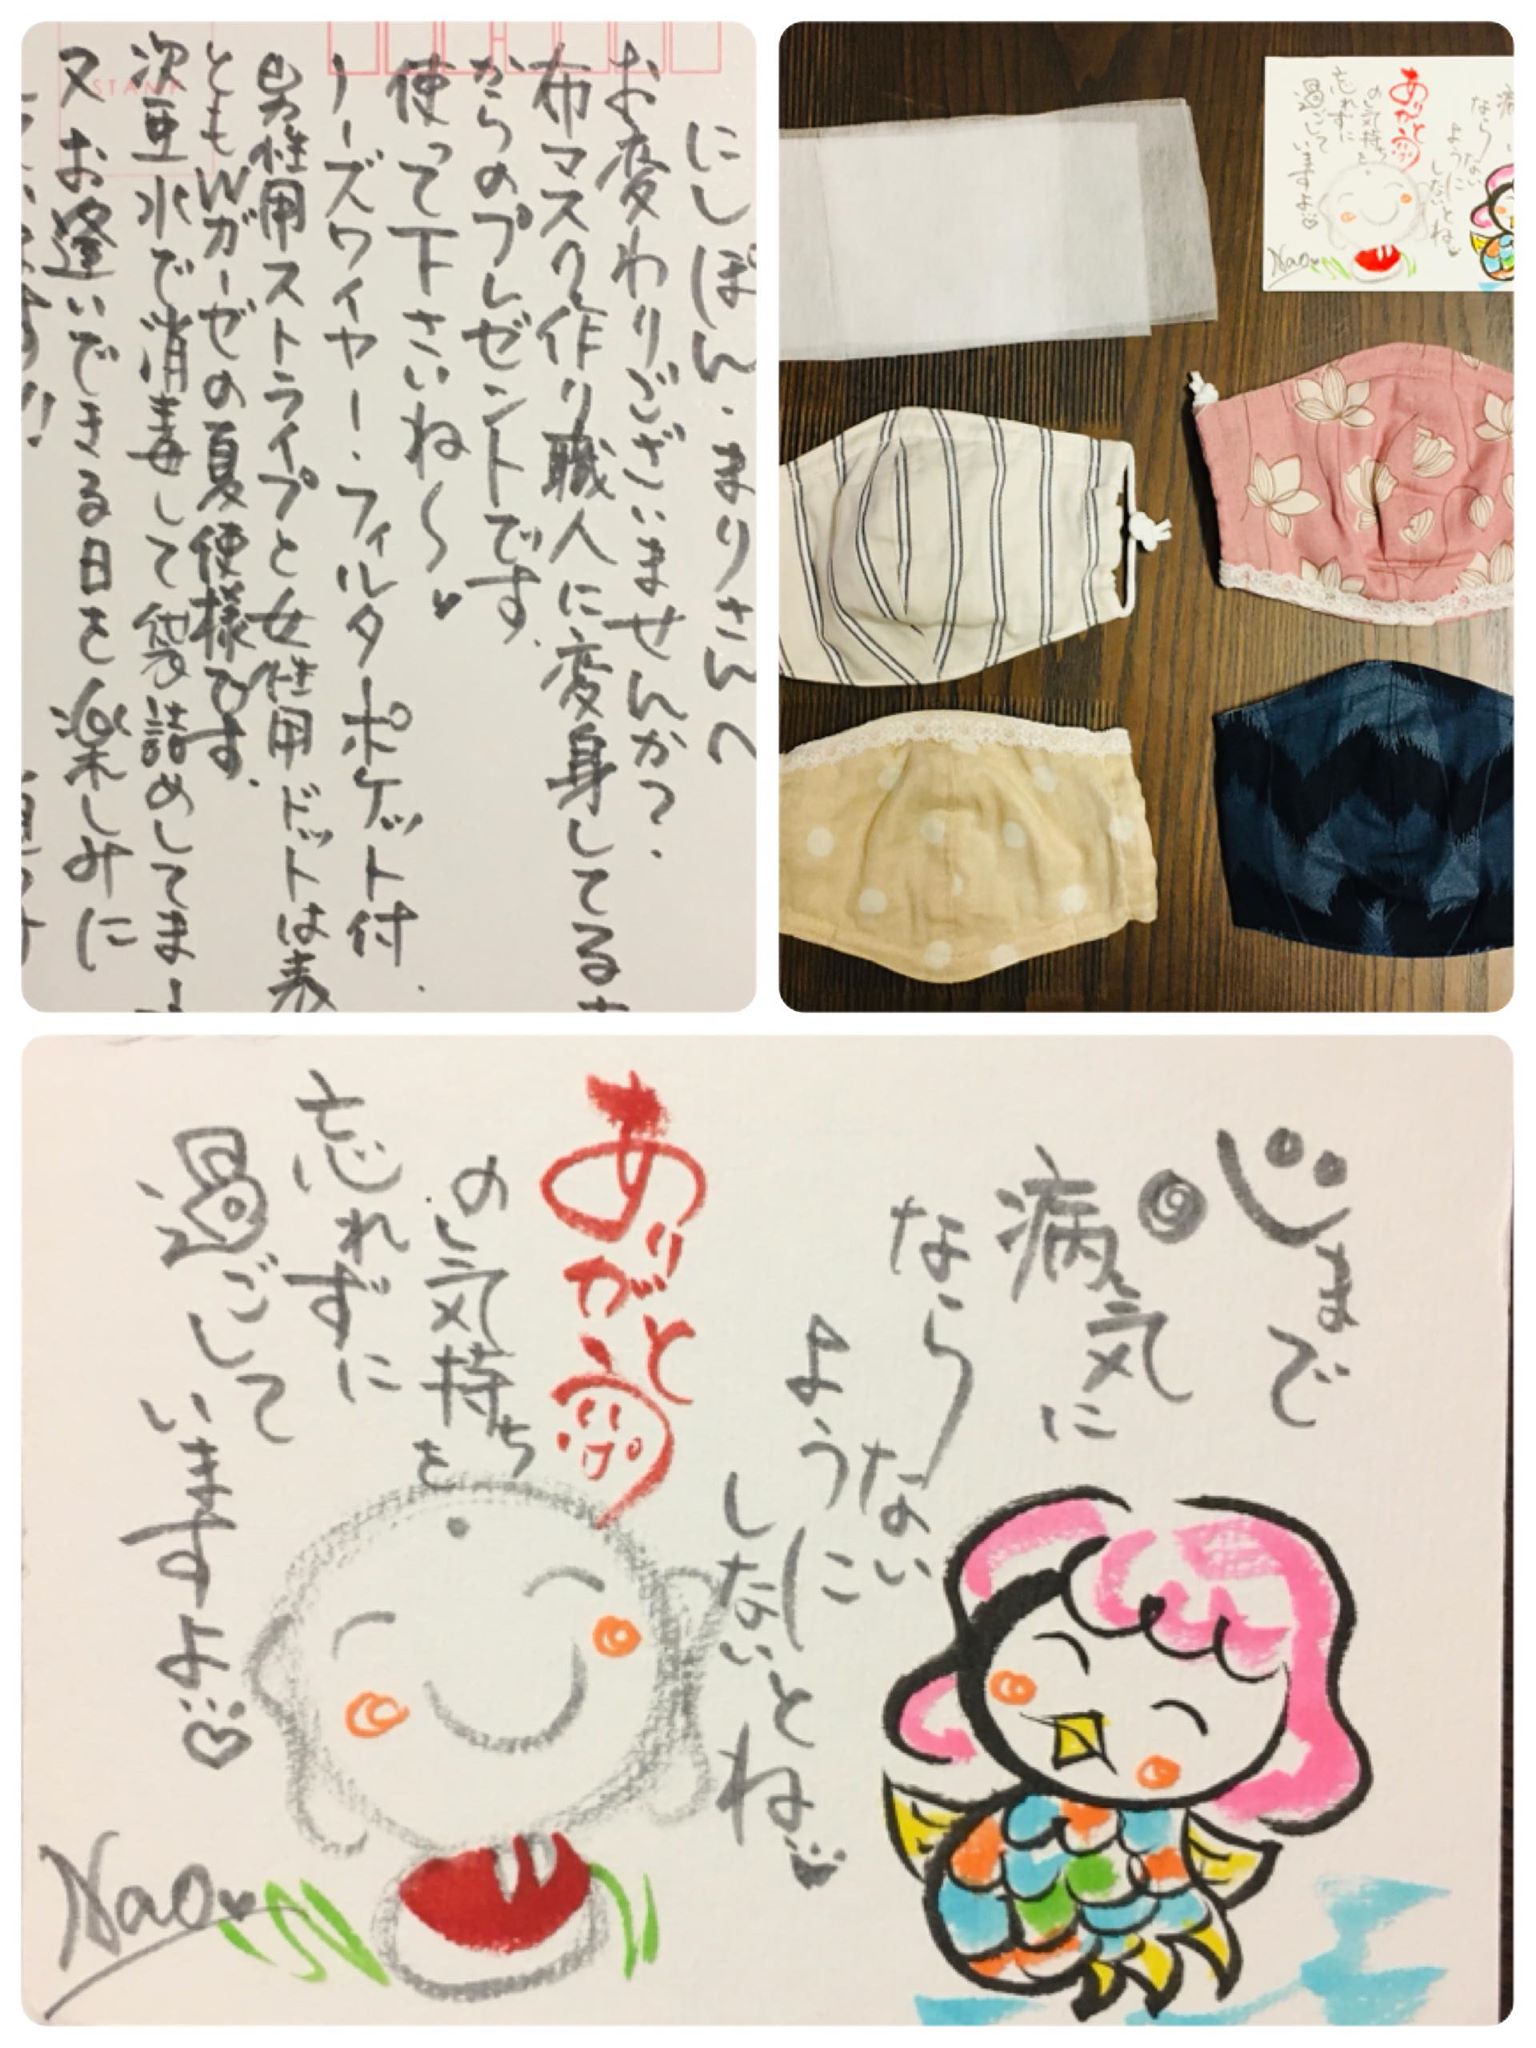 にしぽん・まりさんへ
お変わりございませんか?
布マスク作り職人に変身してる
からのプレゼントです.
使って下さいね〜♥
ノーズワイヤー・フィルターポケット付.
男性用ストライプと女性用ドットは表
ともWガーゼの夏使様です.
次亜水で消毒して袋詰めしてま
又お逢いできる日を楽しみに
STAMP
ありがとう
の気持ちを
忘れずに
過ごして
いますよ♡
Nao♥
病
なら
ない
ように
しないとね
心まで
病気に
なら
ない
ように
しないとね♥
ありがとう
の気持ちを
忘れずに
過ごして
いますよ♡
Nao♥